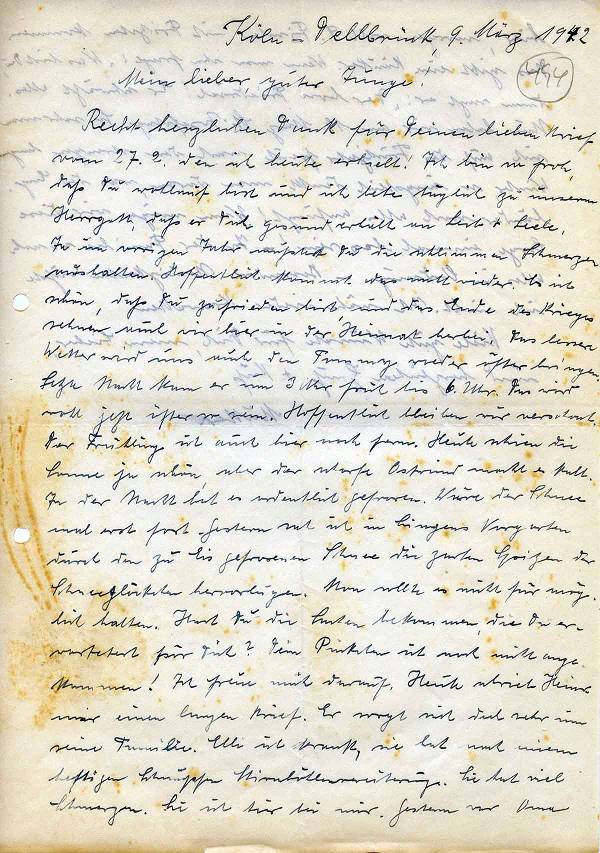 Köln-Dellbrück, 9. März 1942
494
Mein lieber, guter Junge!
Recht herzlichen Dank für Deinen lieben Brief
vom 27.2. den ich heute erhielt! Ich bin so froh,
daß Du wohlauf bist und ich bete täglich zu unserm
Herrgott, daß er Dich gesund erhält an Leib + Seele.
Im vorigen Jahr mußtest Du die schlimmen Schmerzen
aushalten. Hoffentlich kommt das nicht wieder. Es ist
schön, daß Du zufrieden bist, und das Ende des Krieges
sehnen auch wir hier in der Heimat herbei. Das bessere
Wetter wird uns auch den Tommy wieder öfter bringen.
Letzte Nacht kam er um 3 Uhr früh bis 6 Uhr. Das wird
wohl jetzt öfter so sein. Hoffentlich bleiben wir verschont.
Der Frühling ist auch hier noch fern. Heute schien die
Sonne ja schön, aber der scharfe Ostwind macht es kalt.
In der Nacht hat es ordentlich gefroren. Wäre der Schnee
mal erst fort. Gestern sah ich in Vorgarten
durch den zu Eis gefrorenen Schnee die zarten Spitzen der
Schneeglöckchen hervorlugen. Man sollte es nicht für mög-
lich halten. Hast Du die Sachen bekommen, die Du er-
wartetest für Dich? Dein Päckchen ist noch nicht ange-
kommen! Ich freue mich darauf. Heute schrieb Heinz
mir einen langen Brief. Er sorgt sich doch sehr um
seine Familie. Elli ist krank, sie hat nach einem
heftigen Schnupfen Stirnhöhlenvereiterung. Sie hat viel
Schmerzen. Sie ist hier bei mir. Gestern war Oma